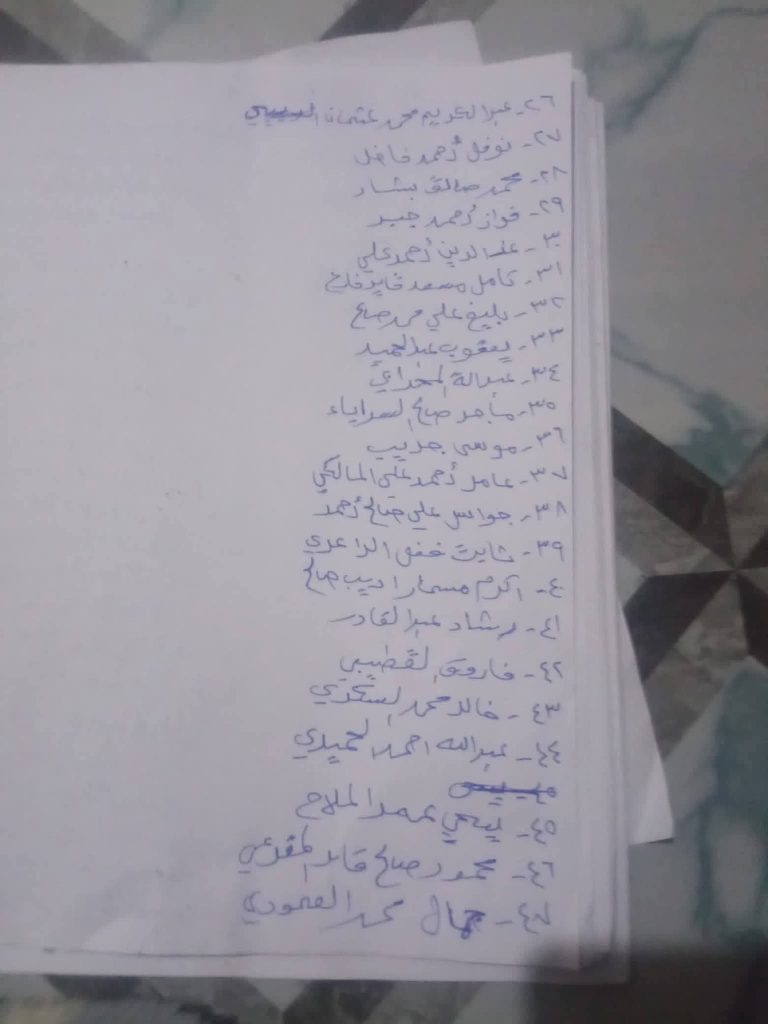 ٢٦- عبدالكريم محمد عثمان
٢٧- نوفل أحمد فاضل
٢٨- محمد صالق بشار
٢٩- فواز أحمد جبر
٣٠- عزالدين أحمد علي
٣١- كامل مسعد قايد فلاح
٣٢- بليغ علي محمد صالح
٣٣- يعقوب عبدالحميد
٣٤- عبدالله
٣٥- ماجد صالح
٣٦- موسى
٣٧- عامر أحمد علي المالكي
٣٨- جواس علي صالح أحمد
٣٩- ثابت الداعري
٤٠- اكرم مسمار اديب صالح
٤١- رشاد عبدالقادر
٤٢- فاروق القطيبي
٤٣- خالد محمد
٤٤- عبدالله احمد الحميدي
٤٥- يحي محمد الملاح
٤٦- محمود صالح قايد
٤٧- جمال محمد العمودي